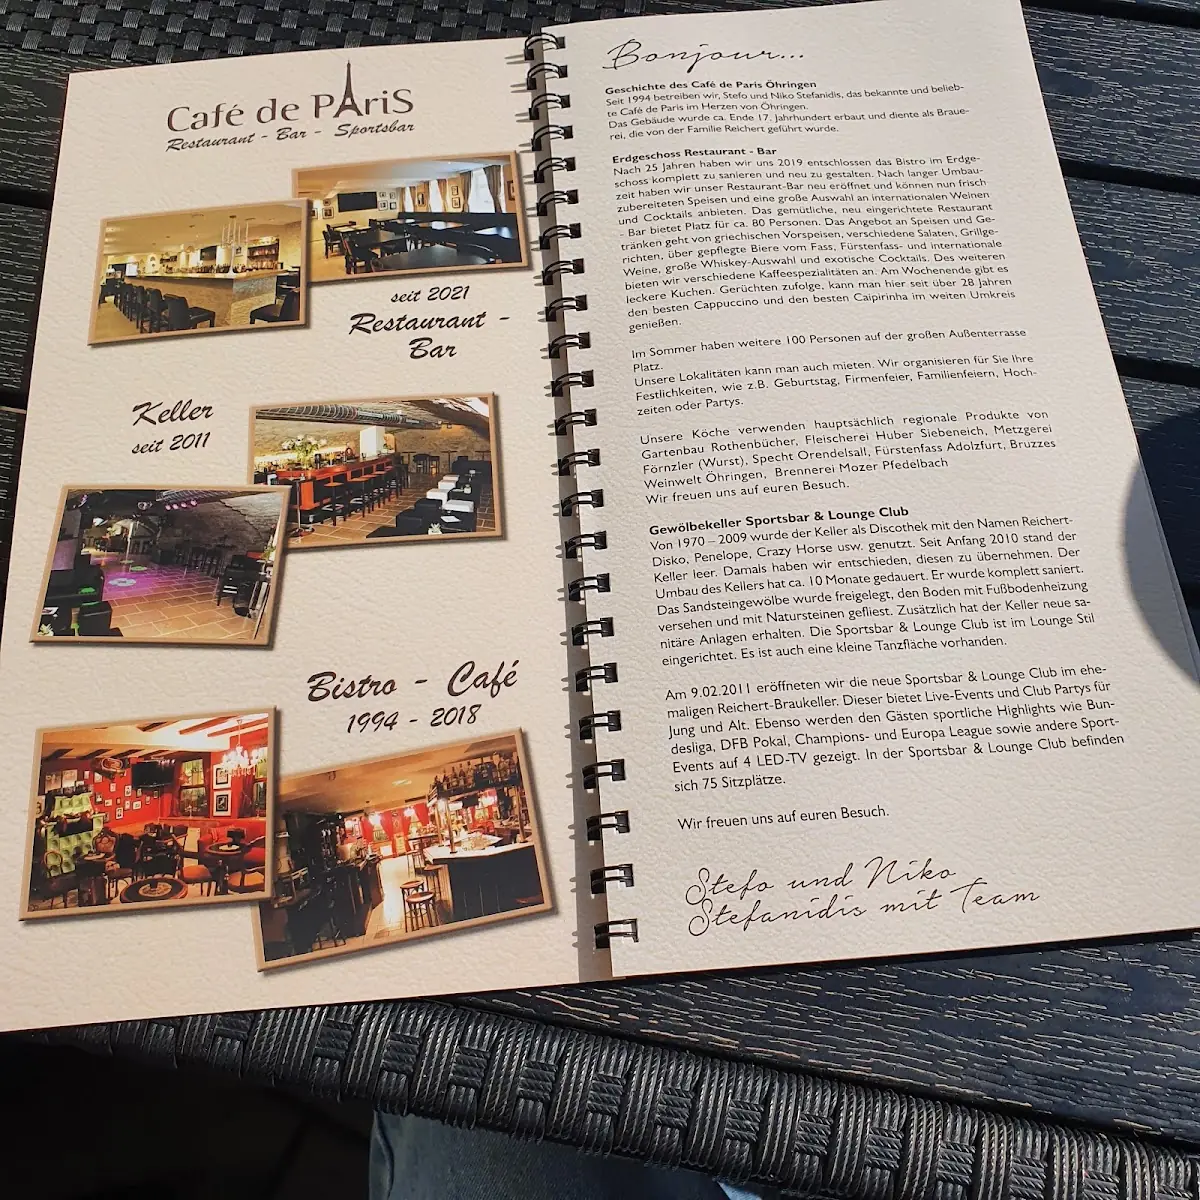 Café de PAriS
Restaurant - Bar - Sportsbar
seit 2021
Restaurant -
Bar
Keller
seit 2011
Bistro - Café
1994 - 2018
Bonjour...
Geschichte des Café de Paris Öhringen
Seit 1994 betreiben wir, Stefo und Niko Stefanidis, das bekannte und belieb-
te Café de Paris im Herzen von Öhringen.
Das Gebäude wurde ca. Ende 17. Jahrhundert erbaut und diente als Braue-
rei, die von der Familie Reichert geführt wurde.
Erdgeschoss Restaurant - Bar
Nach 25 Jahren haben wir uns 2019 entschlossen das Bistro im Erdge-
schoss komplett zu sanieren und neu zu gestalten. Nach langer Umbau-
zeit haben wir unser Restaurant-Bar neu eröffnet und können nun frisch
zubereiteten Speisen und eine große Auswahl an internationalen Weinen
und Cocktails anbieten. Das gemütliche, neu eingerichtete Restaurant
- Bar bietet Platz für ca. 80 Personen. Das Angebot an Speisen und Ge-
tränken geht von griechischen Vorspeisen, verschiedene Salaten, Grillge-
richten, über gepflegte Biere vom Fass, Fürstenfass- und internationale
Weine, große Whiskey-Auswahl und exotische Cocktails. Des weiteren
bieten wir verschiedene Kaffeespezialitäten an. Am Wochenende gibt es
leckere Kuchen. Gerüchten zufolge, kann man hier seit über 28 Jahren
den besten Cappuccino und den besten Caipirinha im weiten Umkreis
genießen.
Im Sommer haben weitere 100 Personen auf der großen Außenterrasse
Platz.
Unsere Lokalitäten kann man auch mieten. Wir organisieren für Sie Ihre
Festlichkeiten, wie z.B. Geburtstag, Firmenfeier, Familienfeiern, Hoch-
zeiten oder Partys.
Unsere Köche verwenden hauptsächlich regionale Produkte von
Gartenbau Rothenbücher, Fleischerei Huber Siebeneich, Metzgerei
Förnzler (Wurst), Specht Orendelsall, Fürstenfass Adolzfurt, Bruzzes
Weinwelt Öhringen, Brennerei Mozer Pfedelbach
Wir freuen uns auf euren Besuch.
Gewölbekeller Sportsbar & Lounge Club
Von 1970 – 2009 wurde der Keller als Discothek mit den Namen Reichert-
Disko, Penelope, Crazy Horse usw. genutzt. Seit Anfang 2010 stand der
Keller leer. Damals haben wir entschieden, diesen zu übernehmen. Der
Umbau des Kellers hat ca. 10 Monate gedauert. Er wurde komplett saniert.
Das Sandsteingewölbe wurde freigelegt, den Boden mit Fußbodenheizung
versehen und mit Natursteinen gefliest. Zusätzlich hat der Keller neue sa-
nitäre Anlagen erhalten. Die Sportsbar & Lounge Club ist im Lounge Stil
eingerichtet. Es ist auch eine kleine Tanzfläche vorhanden.
Am 9.02.2011 eröffneten wir die neue Sportsbar & Lounge Club im ehe-
maligen Reichert-Braukeller. Dieser bietet Live-Events und Club Partys für
Jung und Alt. Ebenso werden den Gästen sportliche Highlights wie Bun-
desliga, DFB Pokal, Champions- und Europa League sowie andere Sport-
Events auf 4 LED-TV gezeigt. In der Sportsbar & Lounge Club befinden
sich 75 Sitzplätze.
Wir freuen uns auf euren Besuch.
Stefo und Niko
Stefanidis mit Team